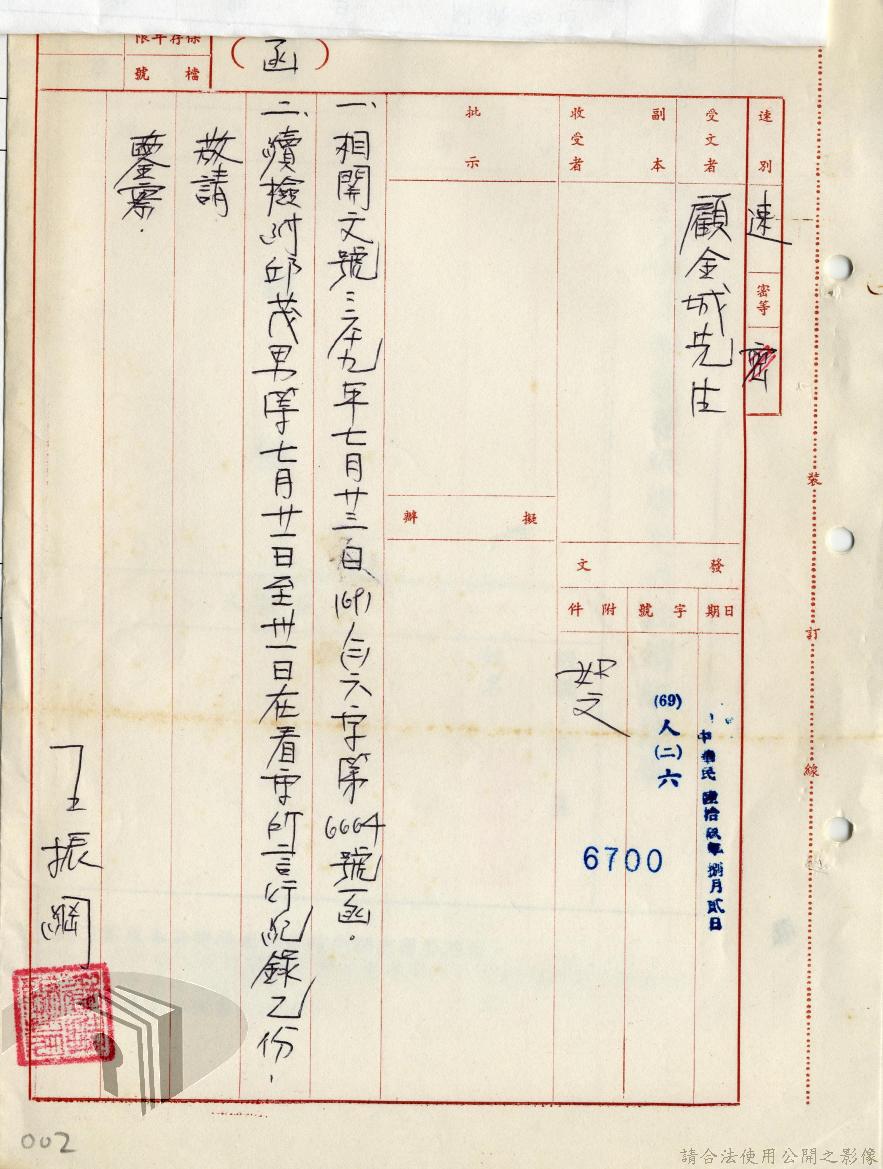 保存年限
檔號
(函)
速別
速
密等
密
受文者
顧金城先生
副本收受者
批示
擬辦
發文
日期
中華民國陸拾玖年捌月貳日
字號
(69)人(二)六
6700
附件
如文
一、相關文號:六十九年七月廿三日(69)人(二)六字第6664號函.
二、續檢附邱茂男等七月廿一日至卅一日在看守所言行紀錄乙份,
敬請
鑒察.
王振綱
裝
訂
線
002
請合法使用公開之影像